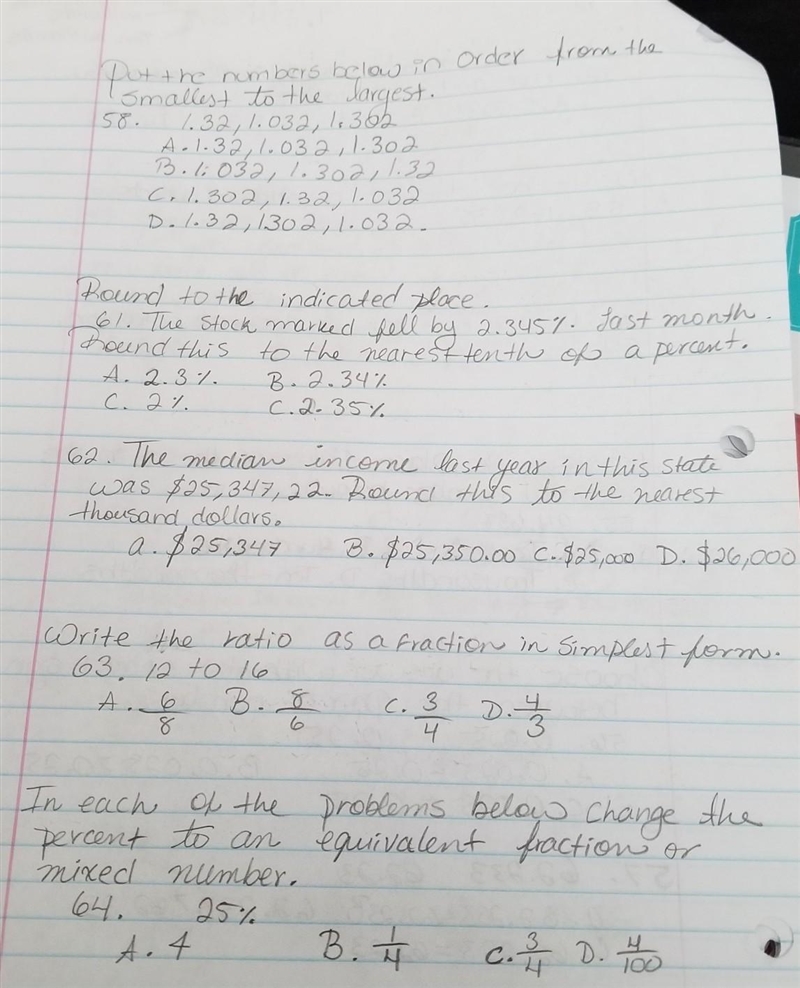 Put the numbers below in order from the
smallest to the largest.
58. 1.32, 1.032, 1.302
A. 1.32, 1.032, 1.302
B. 1.032, 1.302, 1.32
C. 1.302, 1.32, 1.032
D. 1.32, 1302, 1.032.
Round to the indicated place.
61. The stock marked fell by 2.345%. last month.
Round this to the nearest tenth of a percent.
A. 2.3%. B. 2.34%
C. 2%. C. 2.35%
62. The median income last year in this state
was $25,347,22. Round this to the nearest
thousand dollars.
a. $25,347 B. $25,350.00 C. $25,000 D. $26,000
Write the ratio as a fraction in simplest form.
63. 12 to 16
A. 6/8 B. 8/6 C. 3/4 D. 4/3
In each of the problems below change the
percent to an equivalent fraction or
mixed number.
64. 25%
A. 4 B. 1/4 C. 3/4 D. 4/100